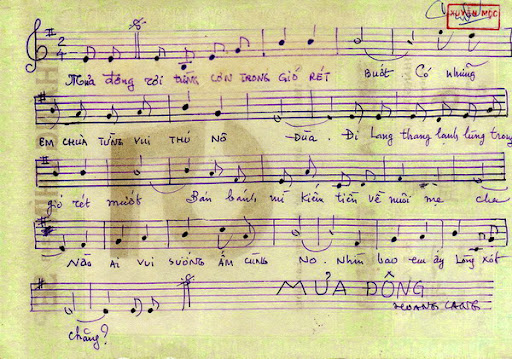 XUYÊN MỘC
2 4
Mưa đông rơi từng cơn trong gió rét buốt. Có những
em chưa từng vui thú nô đùa. Đi lang thang lạnh lùng trong
gió rét mướt Bán bánh mì kiếm tiền về nuôi mẹ cha
Nào ai vui sướng ấm cung no. Nhìn bao em ấy lòng xót
chăng?
MƯA ĐÔNG
HOANG LANG